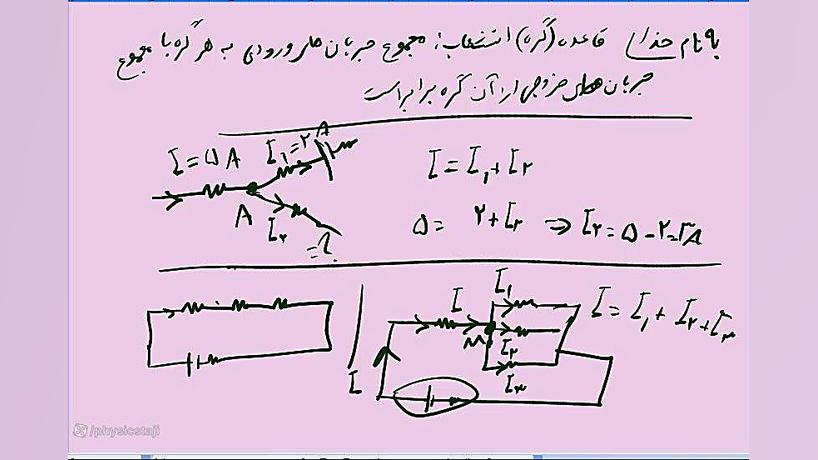 به نام خدا قاعده (گره) انشعاب: مجموع جریان های ورودی به هر گره با مجموع
جریان های خروجی از آن گره برابر است
I = ۵ A
I₁ = ۲ A
A
I₂ = ?
I = I₁ + I₂
۵ = ۲ + I₂ ⇒ I₂ = ۵ - ۲ = ۳A
I
I₁
I₂
I₃
M
I
I = I₁ + I₂ + I₃
/physicstaji